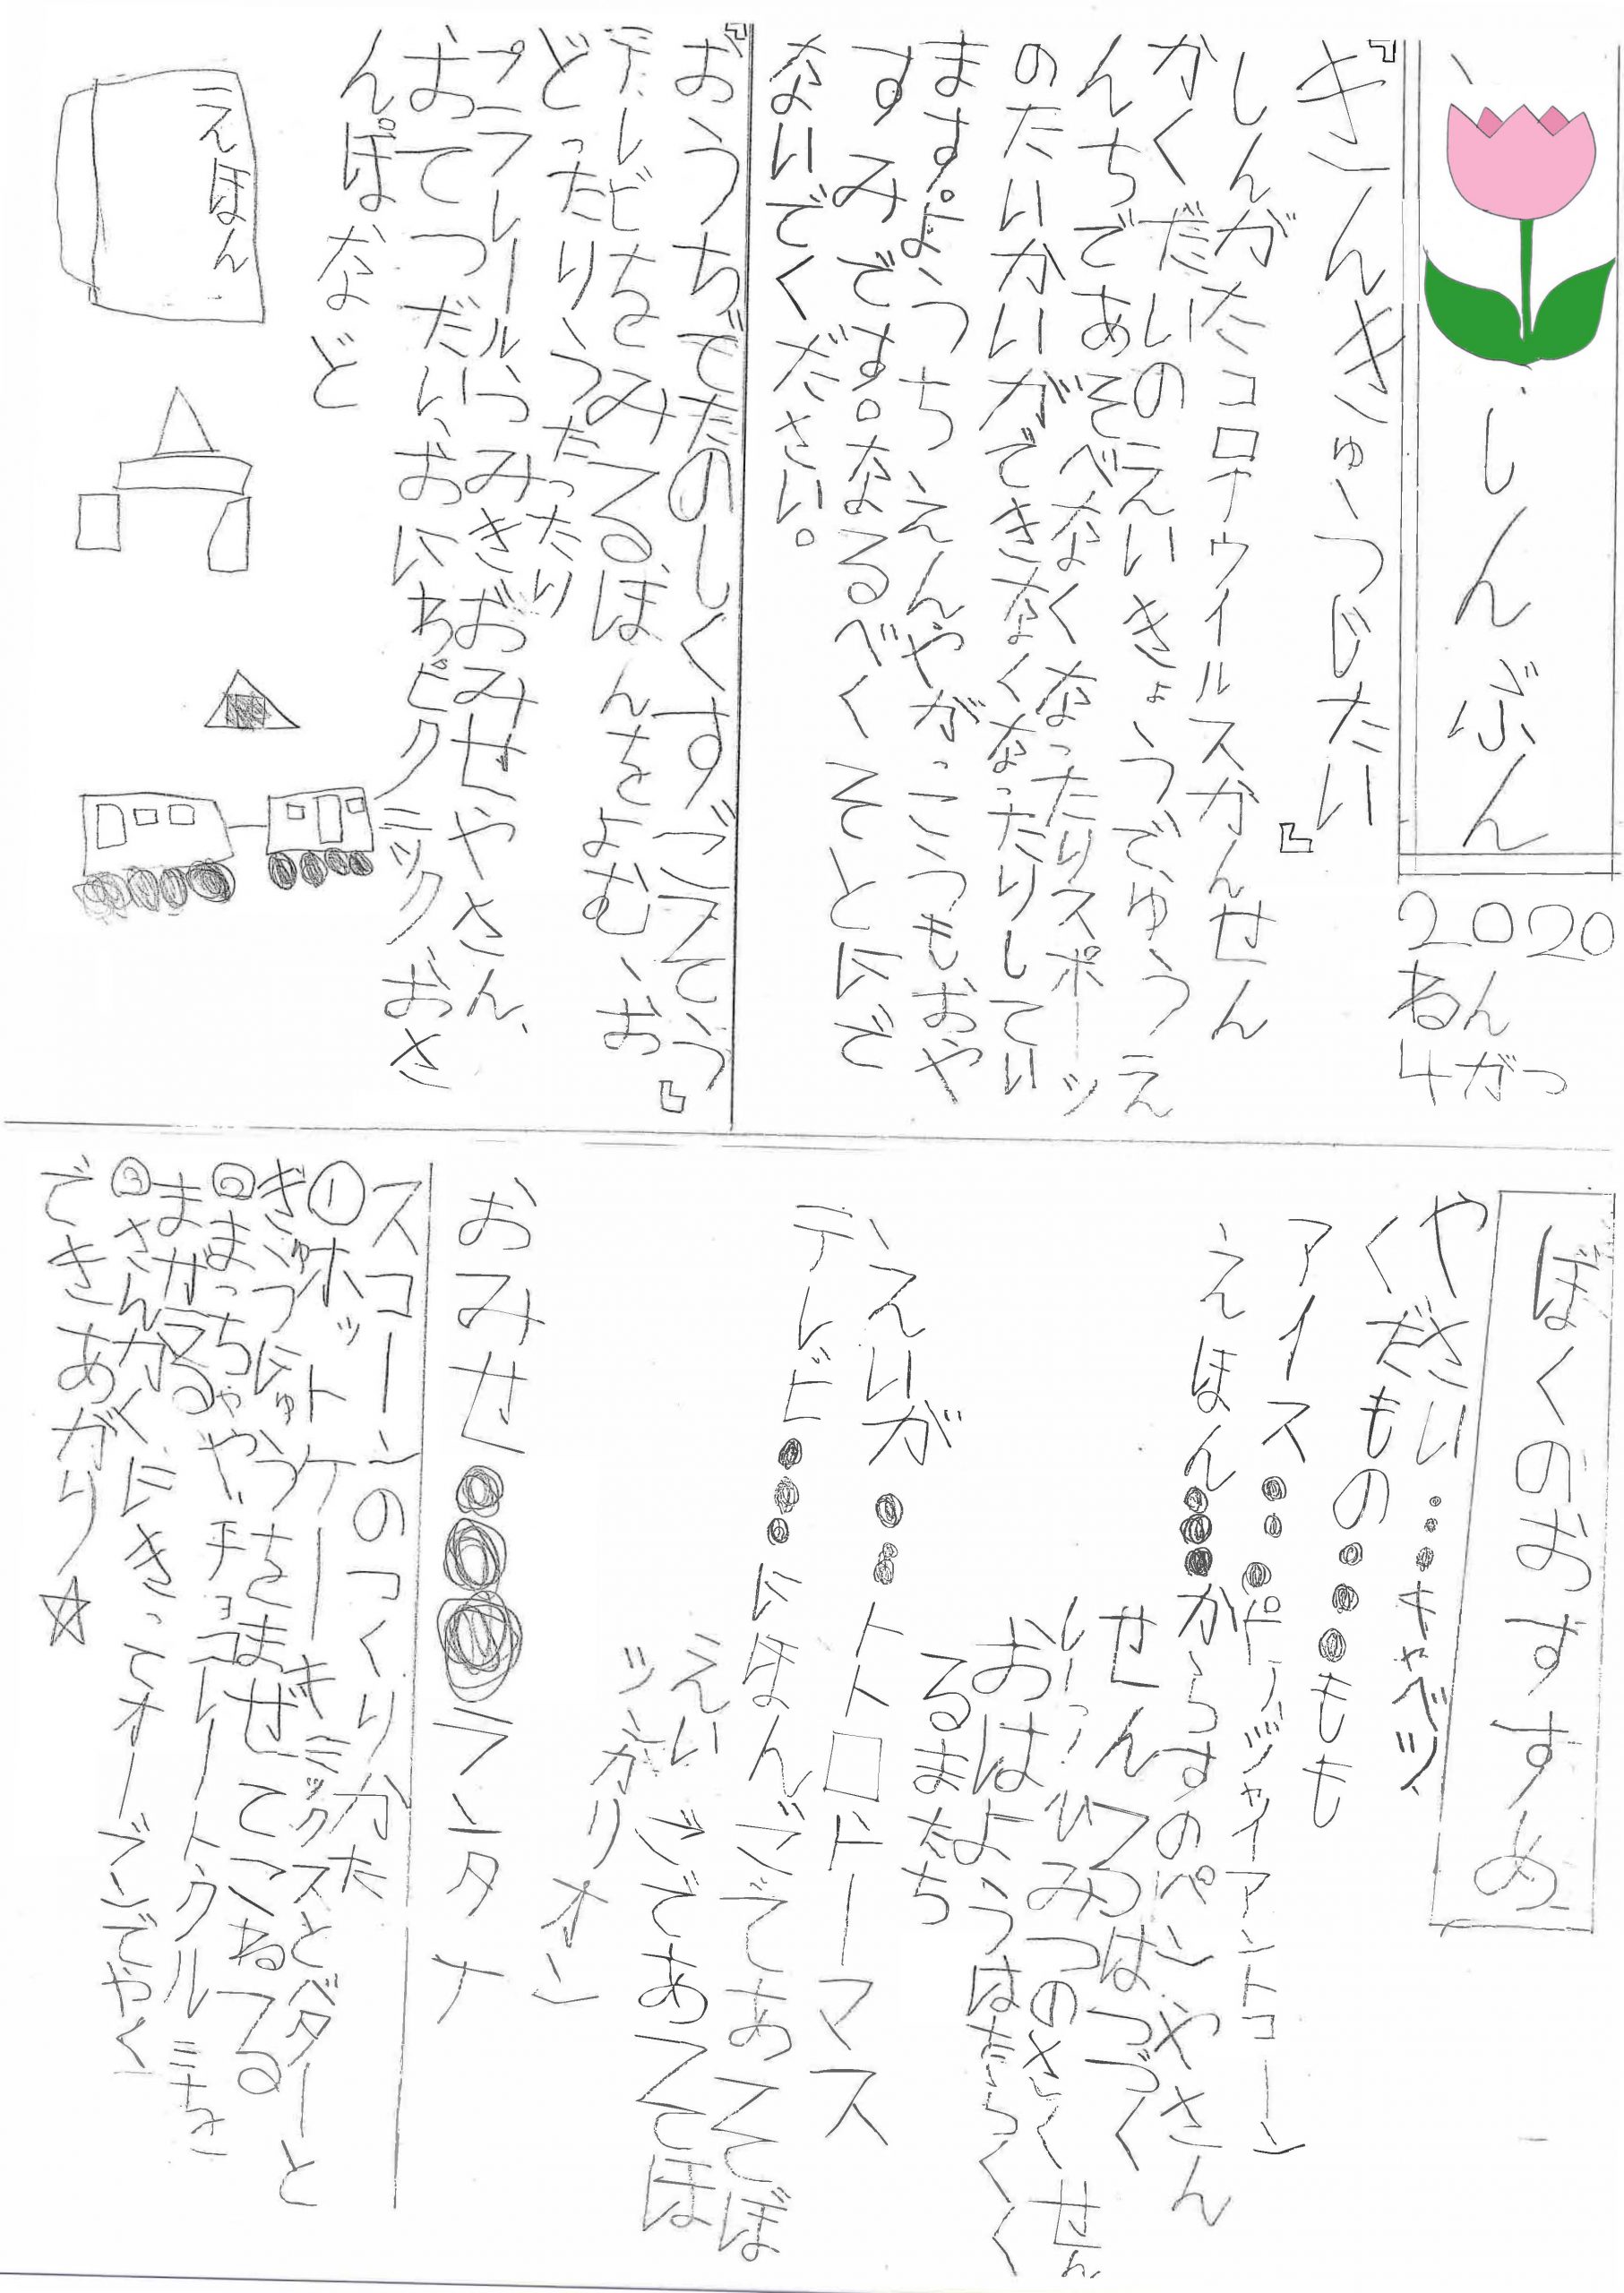 しんぶん
2020
ねん
4がつ
『きんきゅうじたい』
しんがたコロナウイルスかんせん
かくだいのえいきょうでゆうえ
んちであそべなくなったりスポーツ
のたいかいができなくなったりしてい
ます。ようちえんやがっこうもおや
すみです。なるべくそとにで
ないでください。
『おうちでたのしくすごそう』
テレビをみるほんをよむ、お
どったりうたったり
プラレールつみきおみせやさん、
おてつだい、おにわピクニックおさ
んぽなど
えほん
ぼくのおすすめ
やさい・・・キャベツ
くだもの・・・もも
アイス・・・ピノ、ジャイアントコーン
えほん・・・からすのパンやさん
せんろはつづく
おはようはたらくく
るまたち
えいが・・・トトロトーマス
テレビ・・・にほんごであそぼ
えいごであそぼ
シンカリオン
おみせ・・・ランタナ
スコーンのつくりかた
①ホットケーキミックスとバターと
ぎゅうにゅうをまぜてこねる
②まっちゃやチョコレートクルミを
まぜる
③さんかくにきってオーブンでやく
できあがり☆